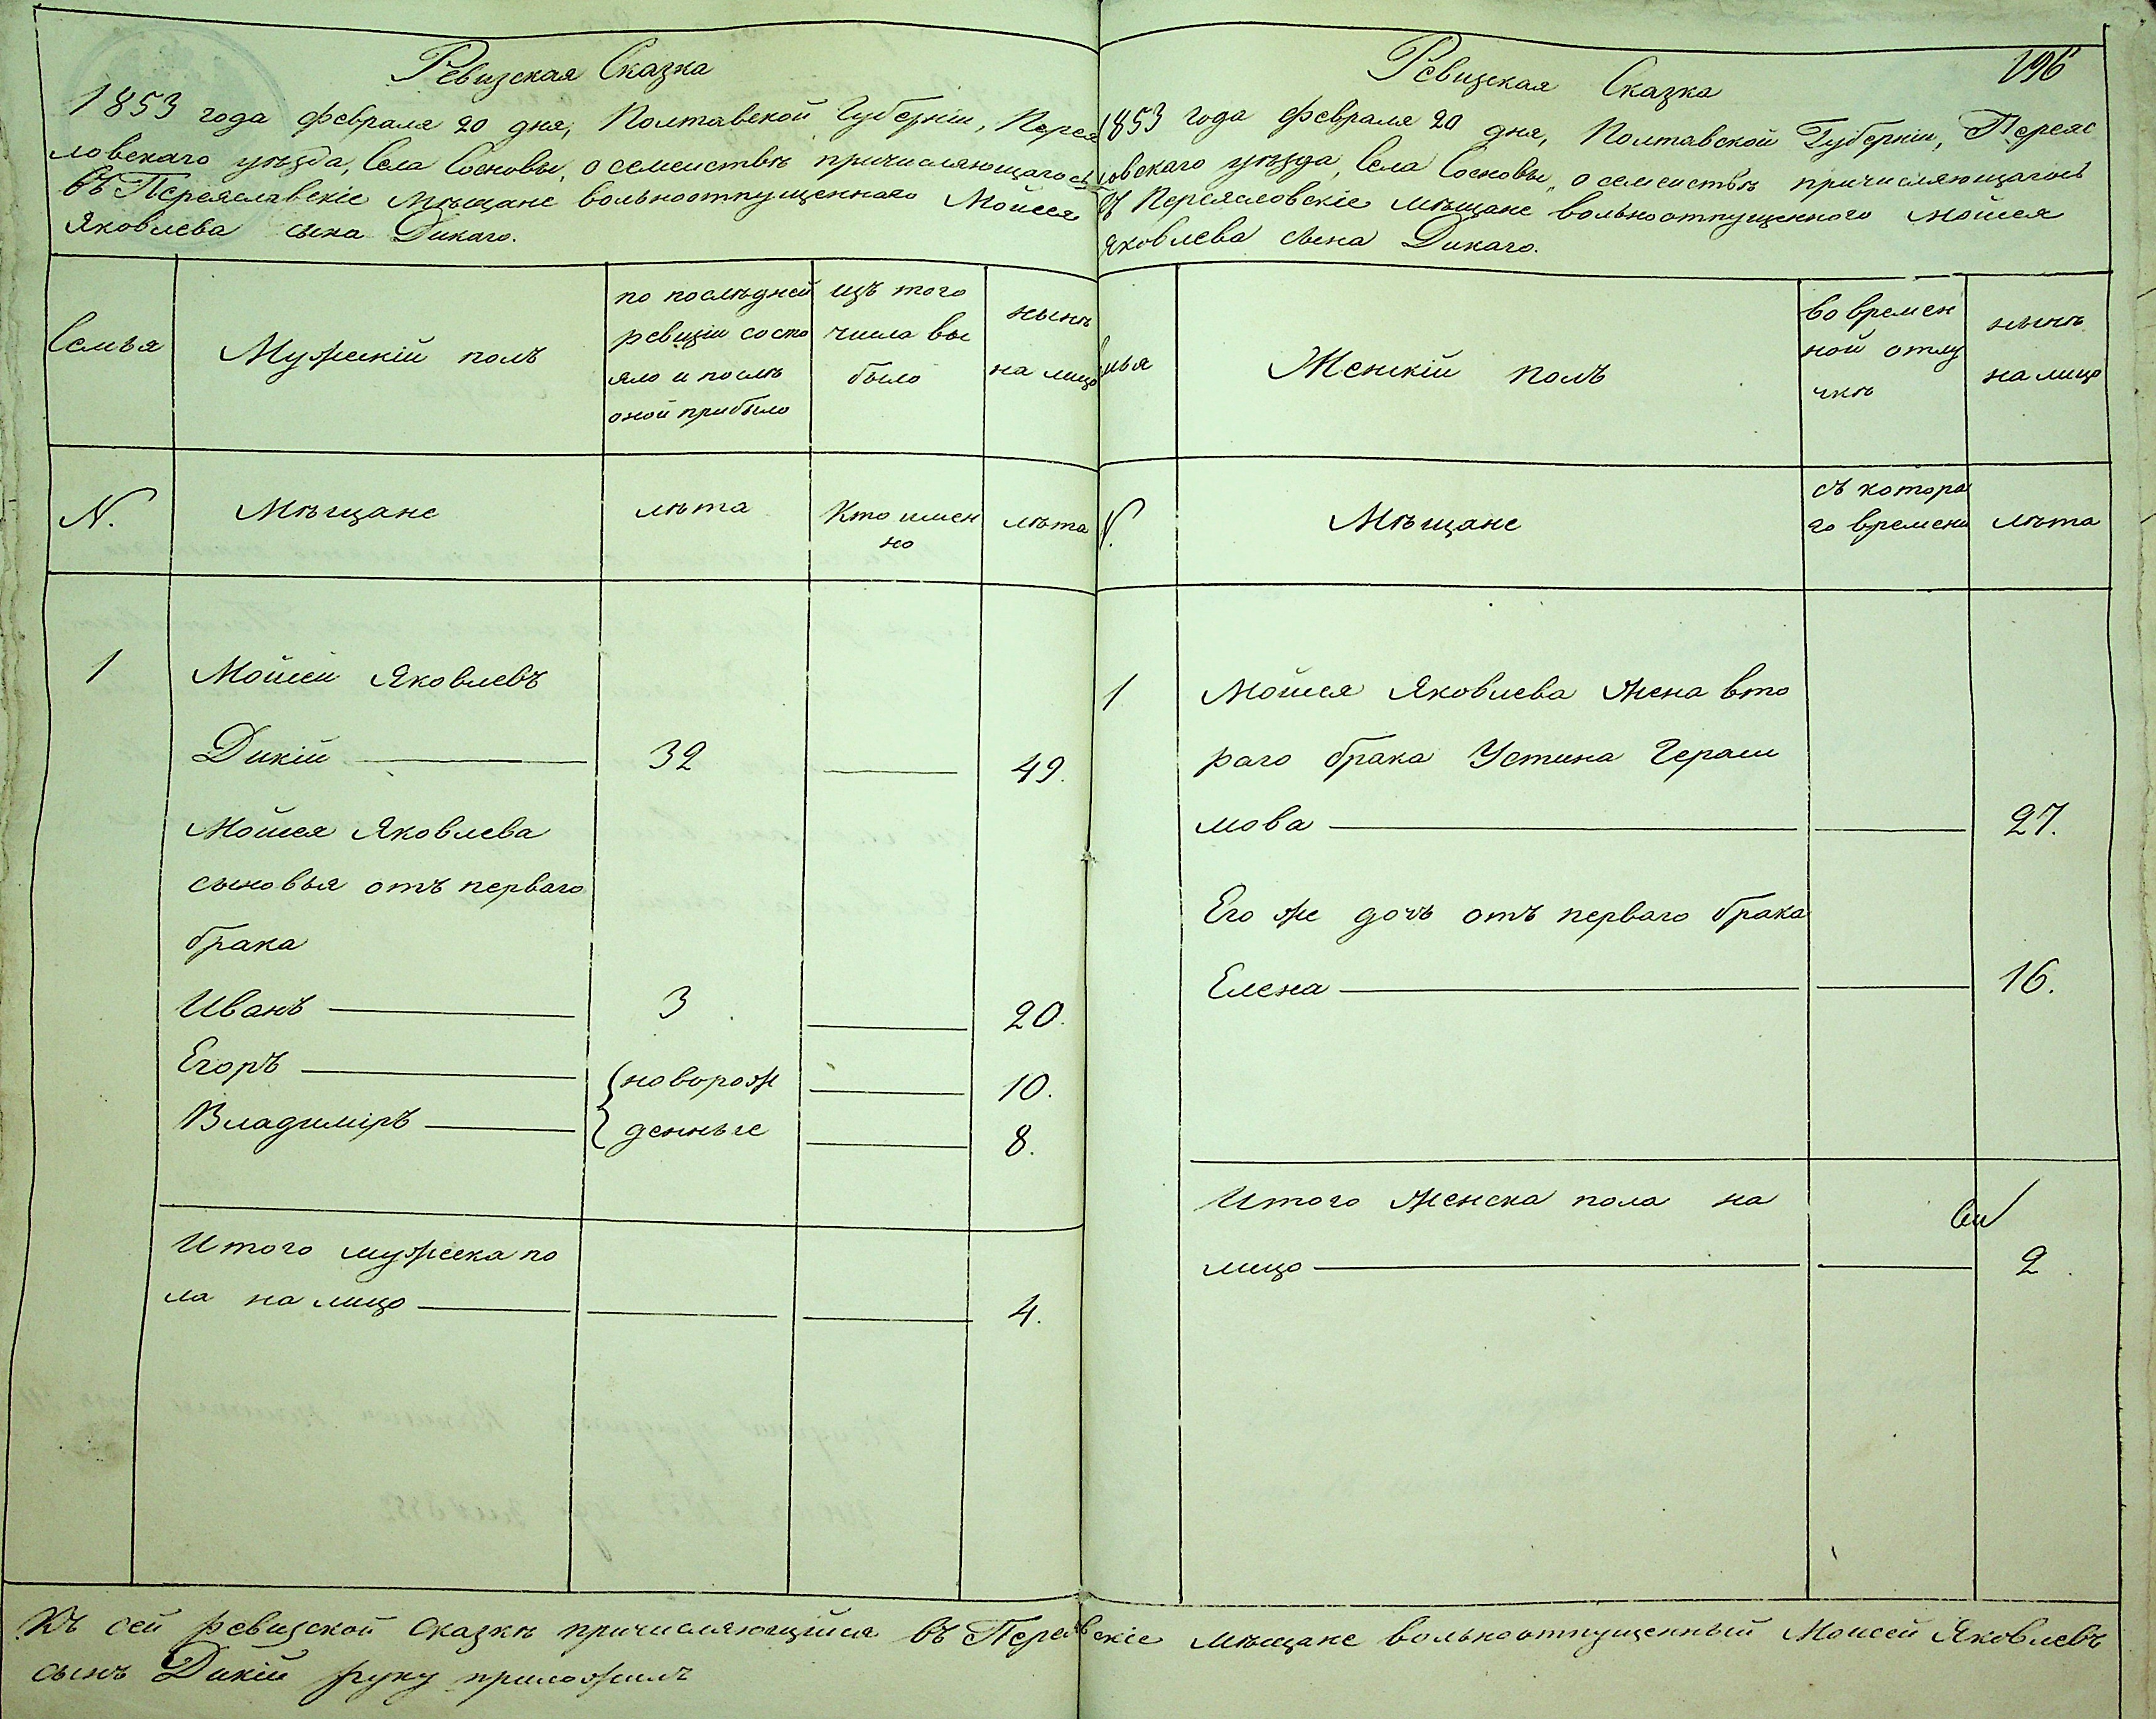 Ревизская Сказка
1853 года февраля 20 дня, Полтавской Губерніи, Перея
ловскаго уѣзда, Села Сосновы, о семействѣ причисляющагось
въ Переяславскіе мѣщане вольноотпущеннаго Мойсея
Яковлева сына Дикаго.
Семья
Мужескій полъ
по послѣдней
ревизіи состо
яло и послѣ
оной прибыло
изъ того
числа вы
было
нынѣ
на лицо
N.
Мѣщане
лѣта
Кто имен
но
лѣта
1
Мойсей Яковлевъ
Дикій 32 49.
Мойсея Яковлева
сыновья отъ перваго
брака
Иванъ 3 20.
Егоръ новорож 10.
Владиміръ денные 8.
Итого мужеска по
ла на лицо 4.
196
Ревизская Сказка
1853 года февраля 20 дня, Полтавской Губерніи, Переяс
ловскаго уѣзда, Села Сосновы, о семействѣ причисляющагось
въ Переясловскіе мѣщане вольноотпущенного Мойсея
Яковлева сына Дикаго.
мья
Женскій полъ
во времен
ной отлу
чкѣ
нынѣ
на лицо
N.
Мѣщане
съ котора
го времени
лѣта
1
Мойсея Яковлева жена вто
раго брака Устина Гераси
мова 27.
Его же дочь отъ перваго брака
Елена 16.
Итого женска пола на
лицо 2.
Къ сей ревизской сказкѣ причисляющійся въ Переявскіе мѣщане вольноотпущенный Моисей Яковлевъ
сынъ Дикій руку приложилъ